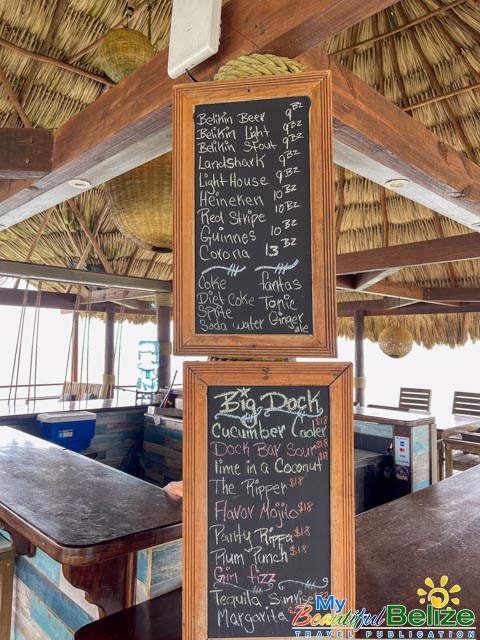 Belikin Beer 9 BZ
Belikin Light 9 BZ
Belikin Stout 9 BZ
Landshark 9 BZ
Light House 9 BZ
Heineken 10 BZ
Red Stripe 10 BZ
Guinnes 10 BZ
Corona 13 BZ
Coke Fantas
Diet Coke Tonic
Sprite Ginger
Soda water ale
Big Dock
Cucumber Cooler $18
Dock Bar Sour $18
Lime in a Coconut $18
The Ripper $18
Flavor Mojito $18
Panty Rippa $18
Plum Punch $18
Gin fizz
Tequila Sunrise
Margarita
My Beautiful Belize
TRAVEL PUBLICATION